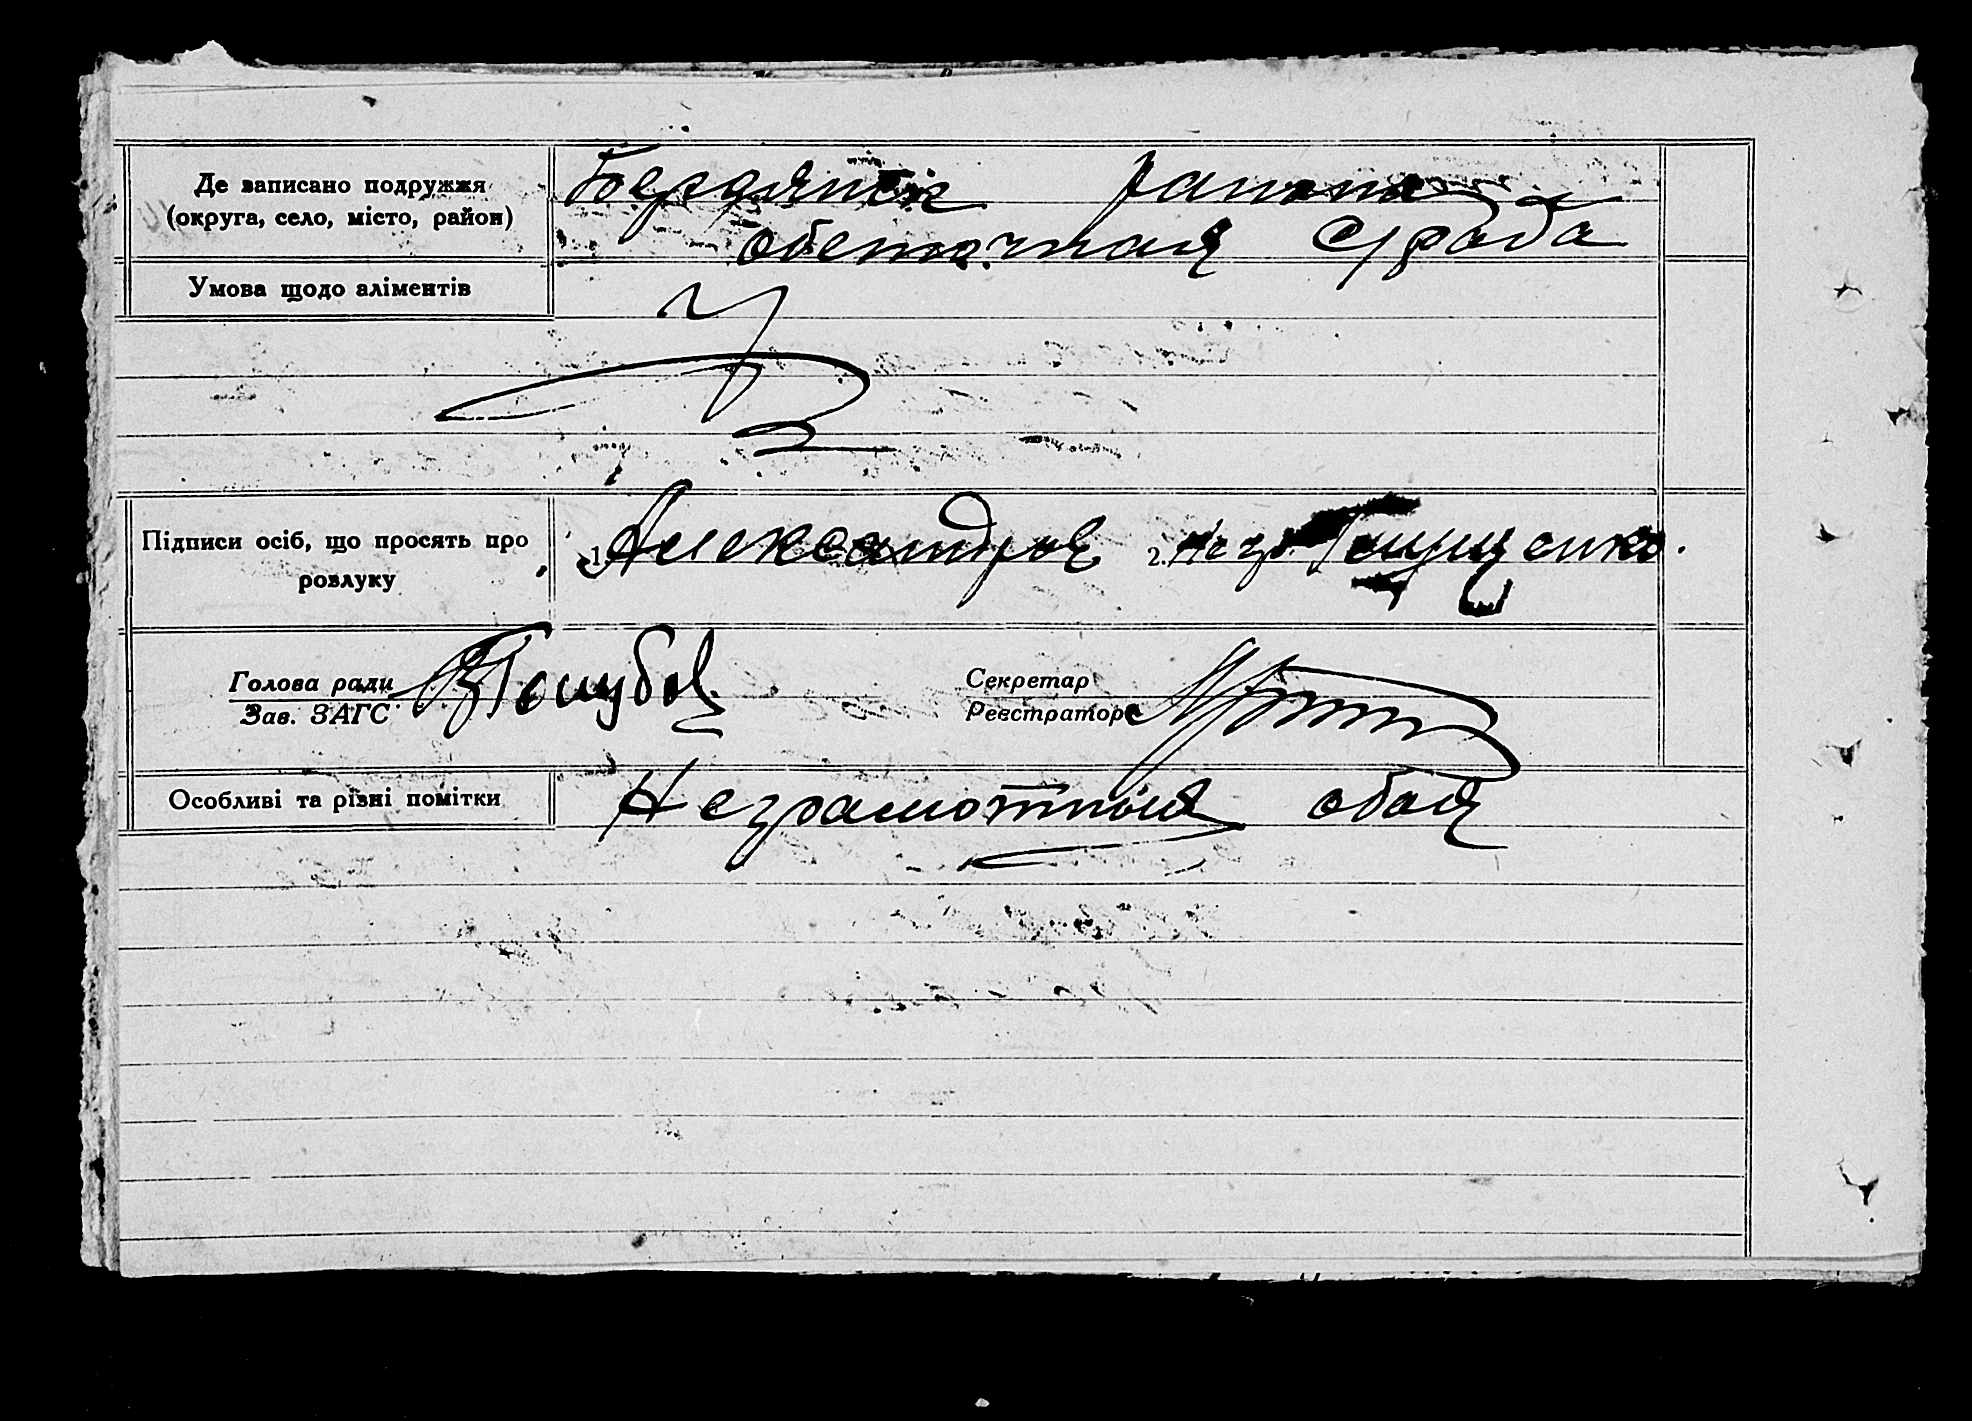 Де записано подружжя
(округа, село, місто, район)
Бердянск района
обеточная с/рада
Умова щодо аліментів
Підписи осіб, що просять про
розлуку
1. Александров 2. Негр.
Голова ради
Зав. ЗАГС
Голубов
Секретар
Реєстратор
Особливі та різні помітки
Неграмотная обая